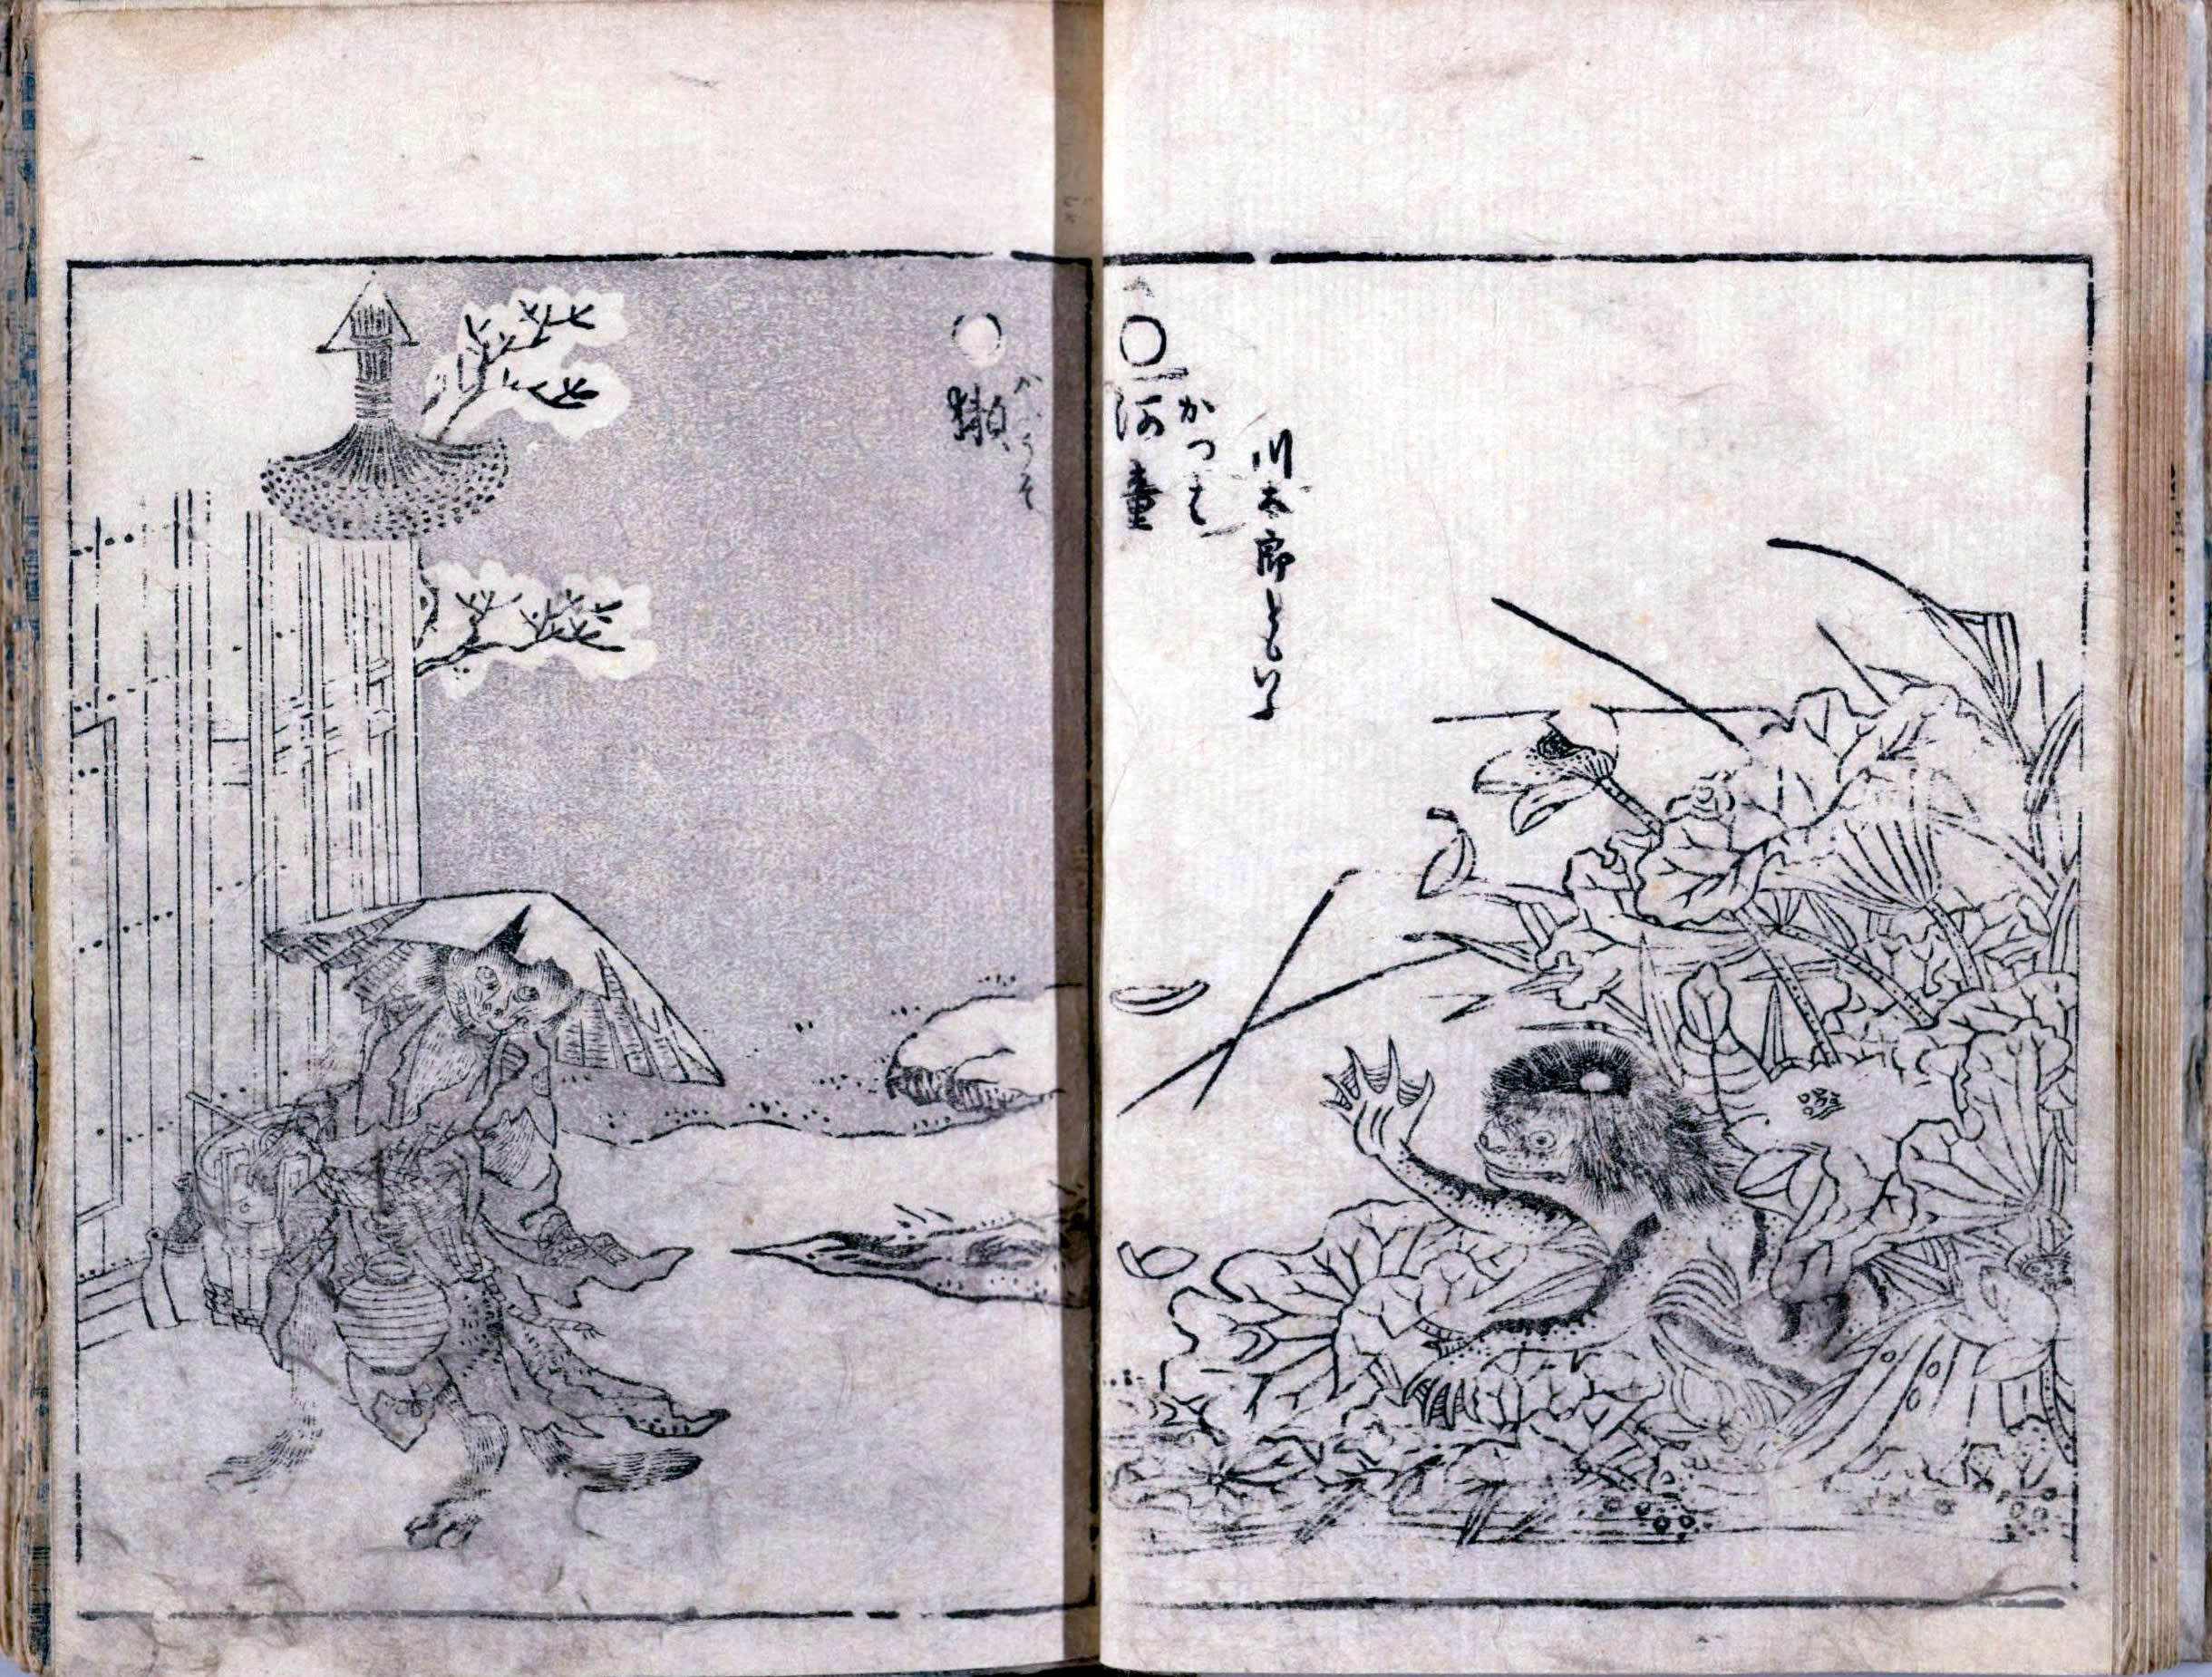 川太郎ともいふ
かつは
〇河童
かハうそ
〇獺